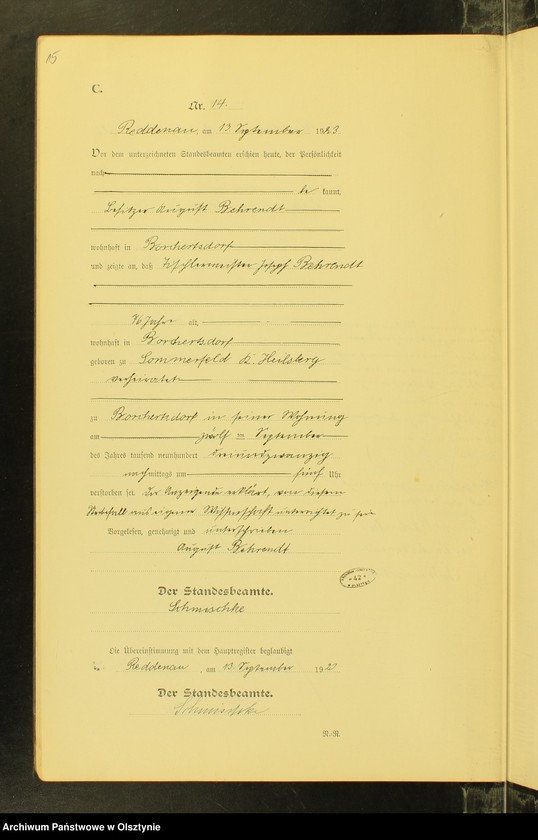 15
C.
Nr. 14.
Reddenau, am 13 September 1923.
Vor dem unterzeichneten Standesbeamten erschien heute, der Persönlichkeit
nach
be kannt,
Besitzer August Behrendt
wohnhaft in Borchertsdorf
und zeigte an, daß Tischlermeister Joseph Behrendt
76 Jahre alt,
wohnhaft in Borchertsdorf
geboren zu Sommerfeld K. Heilsberg
verheiratet
zu Borchertsdorf in seiner Wohnung
am zwölf ten September
des Jahres tausend neunhundert dreiundzwanzig
nachmittags um fünf Uhr
verstorben sei. Der Anzeigende erklärt, von diesem
Sterbefall aus eigener Wissenschaft unterrichtet zu sein
Vorgelesen, genehmigt und unterschrieben
August Behrendt
Der Standesbeamte.
Schmischke
42
Die Übereinstimmung mit dem Hauptregister beglaubigt
Reddenau, am 13. September 192
Der Standesbeamte.
Schmischke
Archiwum Państwowe w Olsztynie